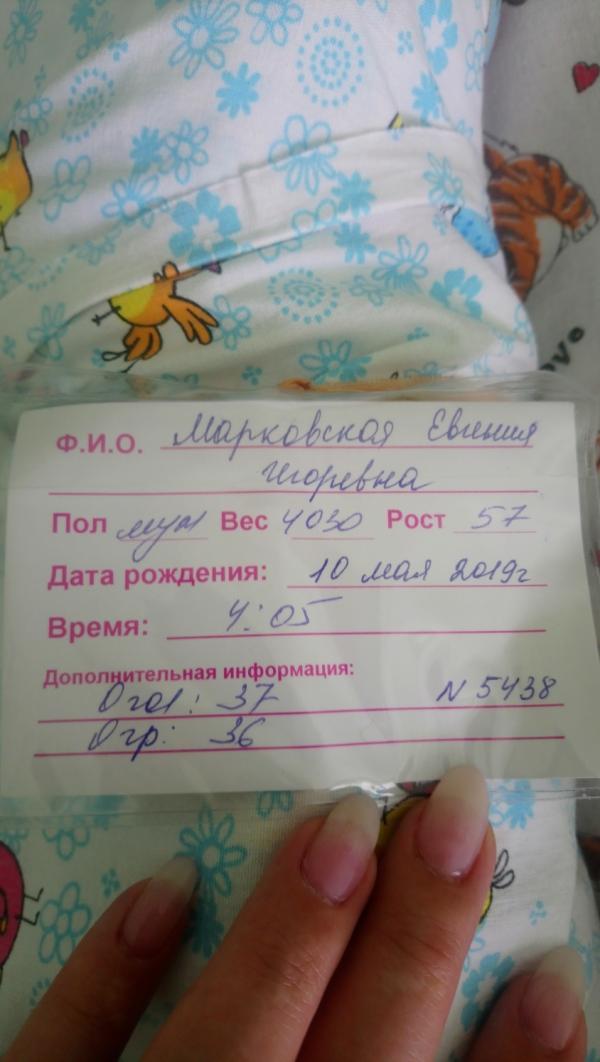 Ф.И.О. Марковская Евгения
Игоревна
Пол муж Вес 4030 Рост 57
Дата рождения: 10 мая 2019г
Время: 4:05
Дополнительная информация:
Огол: 37 N 5438
Огр: 36